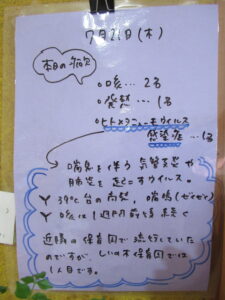 7月21日(木)
本日の病欠
○咳… 2名
○発熱… 1名
○ヒトメタニューモウイルス
感染症… 1名
喘息を伴う 気管支炎や
肺炎を起こすウイルス。
39℃台の高熱、喘鳴(ゼイゼイ)
咳は1週間前後続く
近隣の保育園で流行していた
のですが、しいの木保育園では
1人目です。